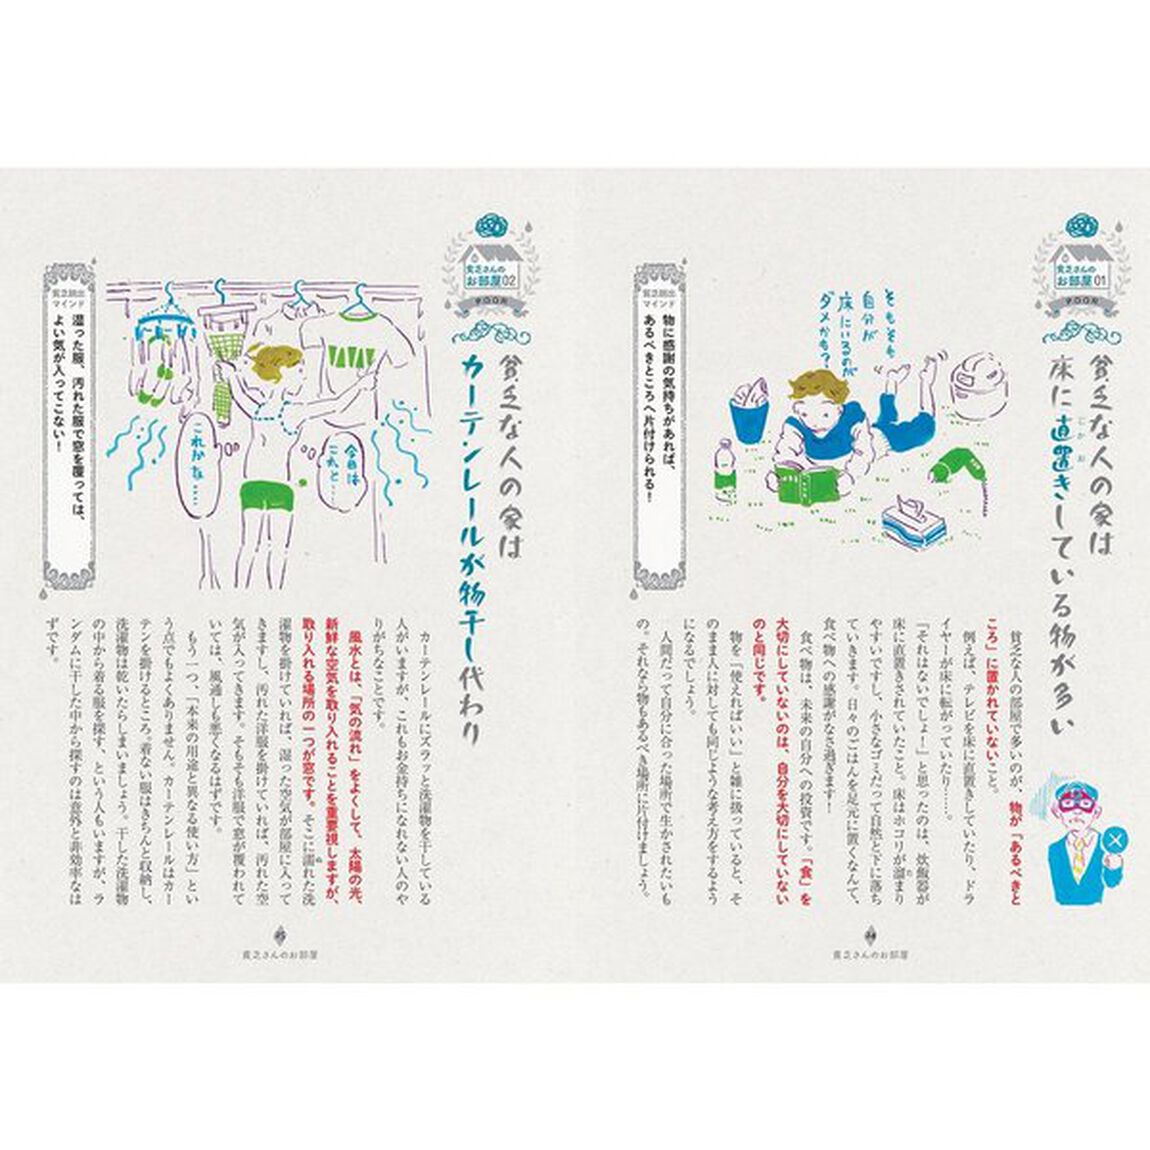 貧乏さんの
お部屋01
POOR
貧乏な人の家は
床に直置きしている物が多い
じかお
そもそも
自分が
床にいるのが
ダメかも?
貧乏脱出
マインド
物に感謝の気持ちがあれば、
あるべきところへ片付けられる!
貧乏な人の部屋で多いのが、物が「あるべきと
ころ」に置かれていないこと。
例えば、テレビを床に直置きしていたり、ドラ
イヤーが床に転がっていたり……。
「それはないでしょ!」と思ったのは、炊飯器が
床に直置きされていたこと。床はホコリが溜まり
やすいですし、小さなゴミだって自然と下に落ち
ていきます。日々のごはんを足元に置くなんて、
食べ物への感謝がなさ過ぎます!
食べ物は、未来の自分への投資です。「食」を
大切にしていないのは、自分を大切にしていない
のと同じです。
物を「使えればいい」と雑に扱っていると、そ
のまま人に対しても同じような考え方をするよう
になるでしょう。
人間だって自分に合った場所で生かされたいも
の。それなら物もあるべき場所に片付けましょう。
24
貧乏さんのお部屋
貧乏さんの
お部屋02
POOR
貧乏な人の家は
カーテンレールが物干し代わり
今日は
これと…
これかな……
貧乏脱出
マインド
湿った服、汚れた服で窓を覆っては、
よい気が入ってこない!
カーテンレールにズラッと洗濯物を干している
人がいますが、これもお金持ちになれない人のや
りがちなことです。
風水とは、「気の流れ」をよくして、太陽の光、
新鮮な空気を取り入れることを重要視しますが、
取り入れる場所の一つが窓です。そこに濡れた洗
濯物を掛けていれば、湿った空気が部屋に入って
きますし、汚れた洋服を掛けていれば、汚れた空
気が入ってきます。そもそも洋服で窓が覆われて
いては、風通しも悪くなるはずです。
もう一つ、「本来の用途と異なる使い方」とい
う点でもよくありません。カーテンレールはカー
テンを掛けるところ。着ない服はきちんと収納し、
洗濯物は乾いたらしまいましょう。干した洗濯物
の中から着る服を探す、という人もいますが、ラ
ンダムに干した中から探すのは意外と非効率なは
ずです。
25
貧乏さんのお部屋